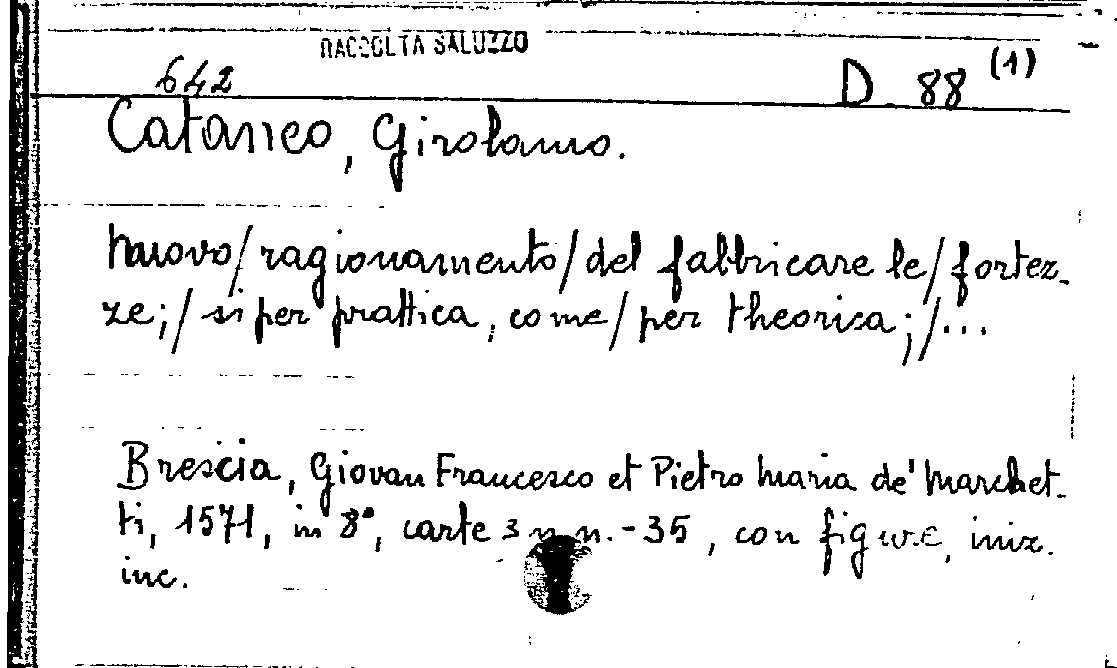 RACCOLTA SALUZZO
642 D 88 (1)
Cataneo, Girolamo.
Nuovo/ragionamento/del fabbricare le/fortez-
ze;/si per prattica, come/per theorica;/...
Brescia, Giovan Francesco et Pietro Maria de' Marchet-
ti, 1571, in 8°, carte 3 n.n.-35, con figure, iniz.
inc.